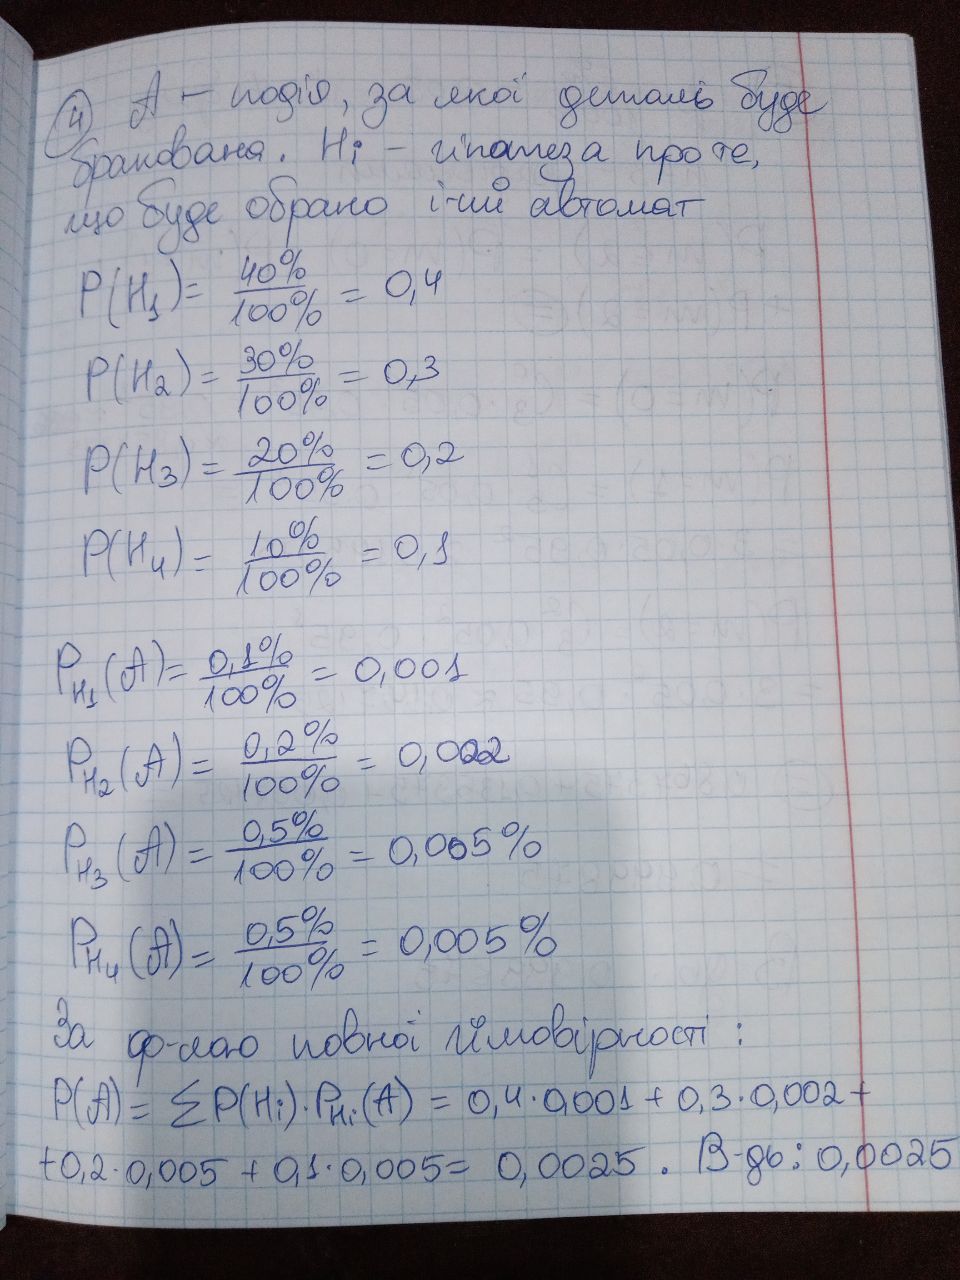 4) A – подія, за якої деталь буде
бракована. Hi – гіпотеза про те,
що буде обрано і-ий автомат
P(H1) = 40%/100% = 0,4
P(H2) = 30%/100% = 0,3
P(H3) = 20%/100% = 0,2
P(H4) = 10%/100% = 0,1
PH1(A) = 0,1%/100% = 0,001
PH2(A) = 0,2%/100% = 0,002
PH3(A) = 0,5%/100% = 0,005%
PH4(A) = 0,5%/100% = 0,005%
За ф-лою повної ймовірності:
P(A) = ΣP(Hi)·PHi(A) = 0,4·0,001 + 0,3·0,002 +
+0,2·0,005 + 0,1·0,005 = 0,0025. В-дь: 0,0025